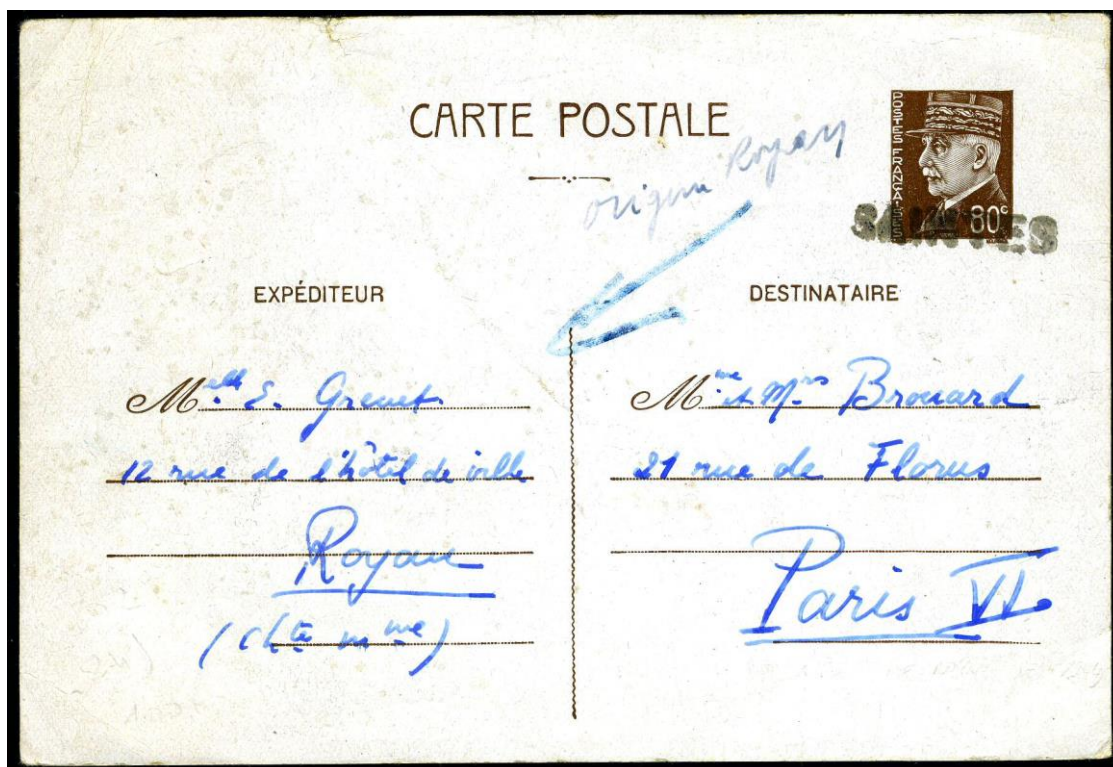 CARTE POSTALE
origine Royan
POSTES FRANÇAISES
80c
SAINTES
EXPÉDITEUR
Melle S. Grenet
12 rue de l'hôtel de ville
Royan
(Chte mme)
DESTINATAIRE
Mme et Mrs Brouard
21 rue de Florus
Paris VI